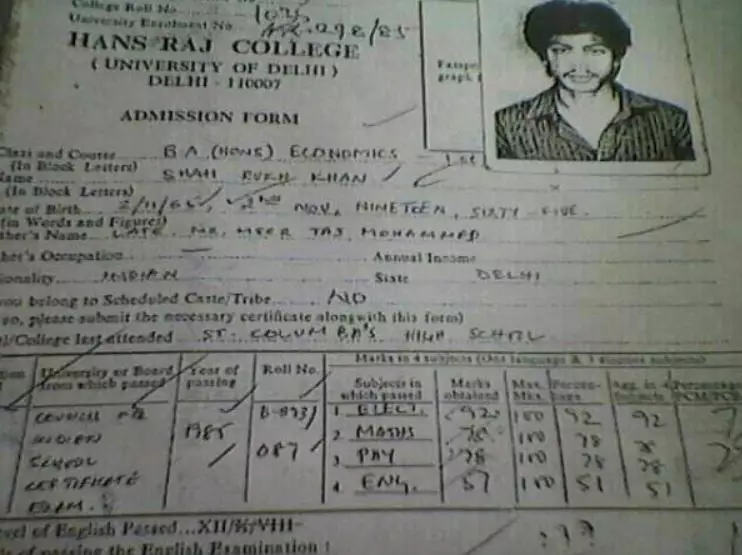 College Roll No.
University Enrolment No.
HANS RAJ COLLEGE
( UNIVERSITY OF DELHI )
DELHI - 110007
ADMISSION FORM
Class and Course B A (HONS) ECONOMICS
(In Block Letters)
Name SHAH RUKH KHAN
(In Block Letters)
Date of Birth 2/11/65, 2ND NOV, NINETEEN, SIXTY-FIVE.
(in Words and Figures)
Father's Name LATE MR. MEER TAJ MOHAMMED
Father's Occupation Annual Income
Nationality INDIAN State DELHI
you belong to Scheduled Caste/Tribe NO
so, please submit the necessary certificate alongwith this form)
College last attended ST. COLUMBA'S HIGH SCHOOL
Marks in 4 subjects (One language & 3 subjects)
University or Board from which passed Year of passing Roll No. Subjects in which passed Marks obtained Max. Mks. Percentage Agg. in 4 subjects Percentage
COUNCIL FOR INDIAN SCHOOL CERTIFICATE EXAM. 1985 B-893/087
1. ELECT. 92 100 92 92
2. MATHS 78 100 78 78
3. PHY 78 100 78 78
4. ENG. 51 100 51 51
Level of English Passed...XII/X/VIII
of passing the English Examination :